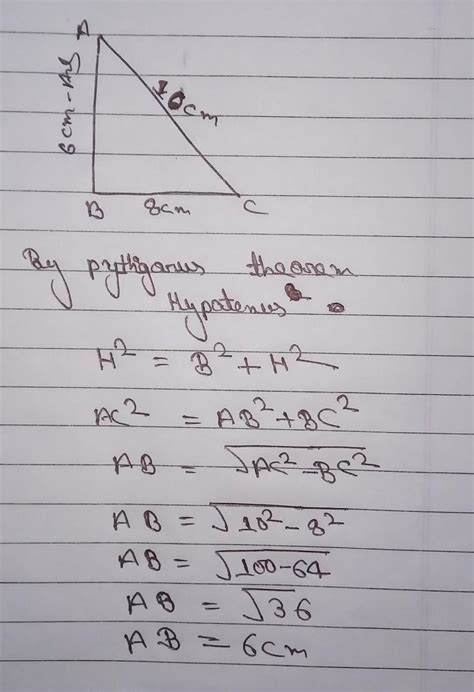 A
6cm-Ans
10cm
B
8cm
C
By pythigarus theorem
Hypotenus
H² = B² + H²
AC² = AB² + BC²
AB = √AC² - BC²
AB = √10² - 8²
AB = √100-64
AB = √36
AB = 6cm